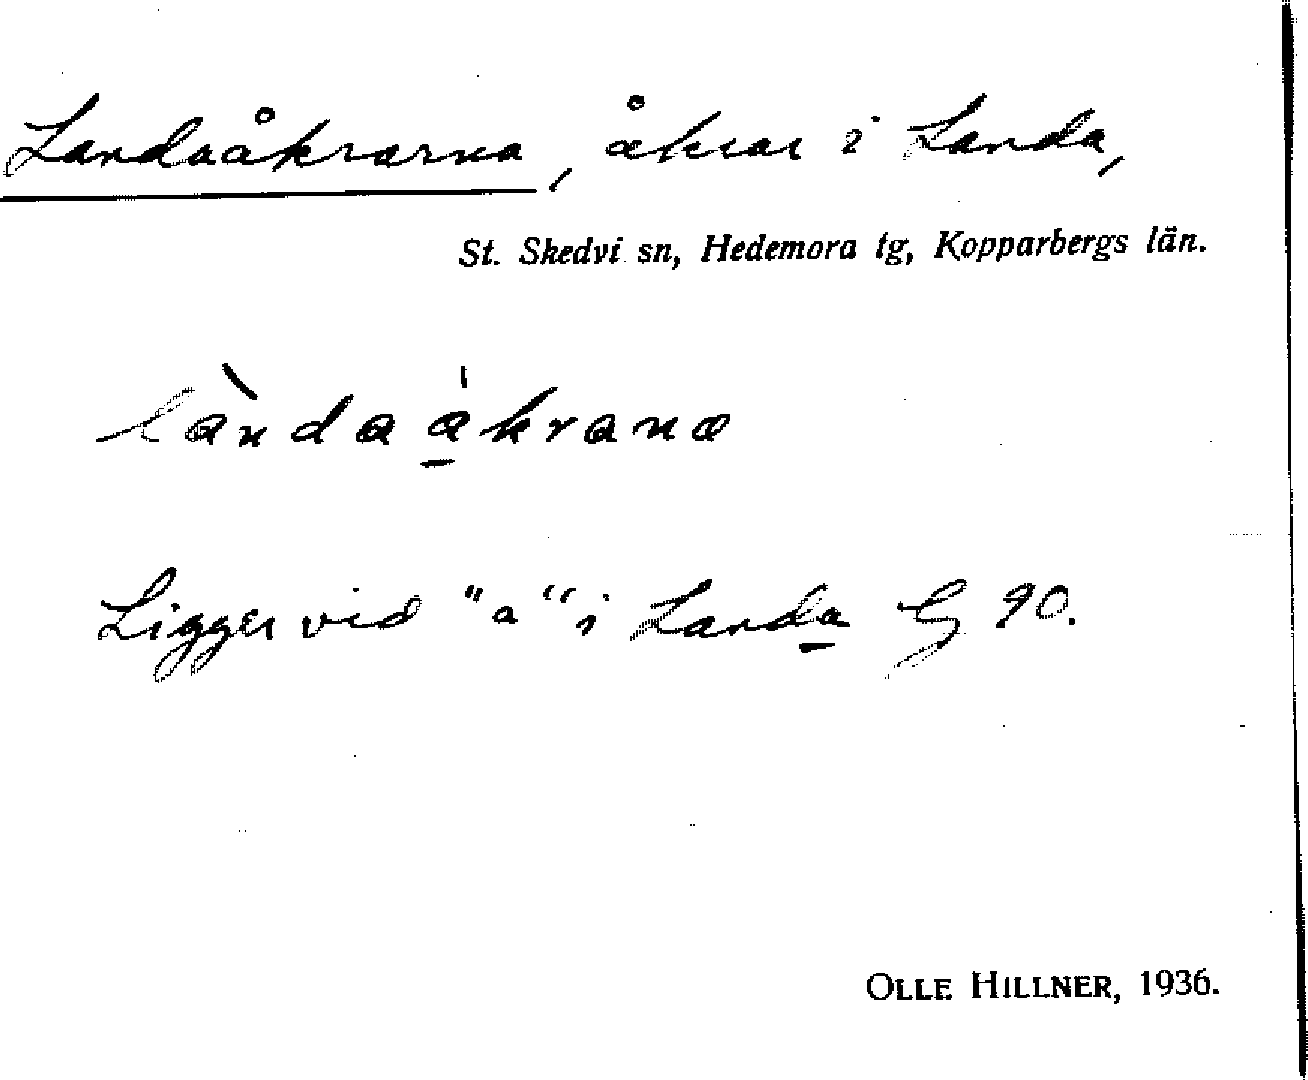 Landaåkrarna, åkrar i Landa,
St. Skedvi sn, Hedemora tg, Kopparbergs län.
làndaa̱̍krana
Ligger vid "a" i Landa G 90.
OLLE HILLNER, 1936.